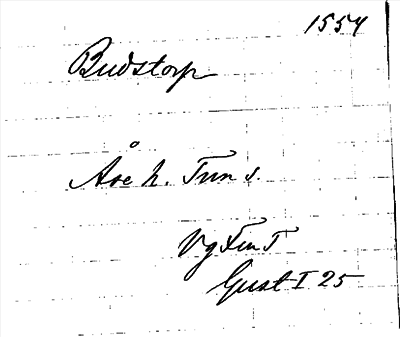 1554
Budstorp
Åse h. Tun s.
Vg
Gust I 25